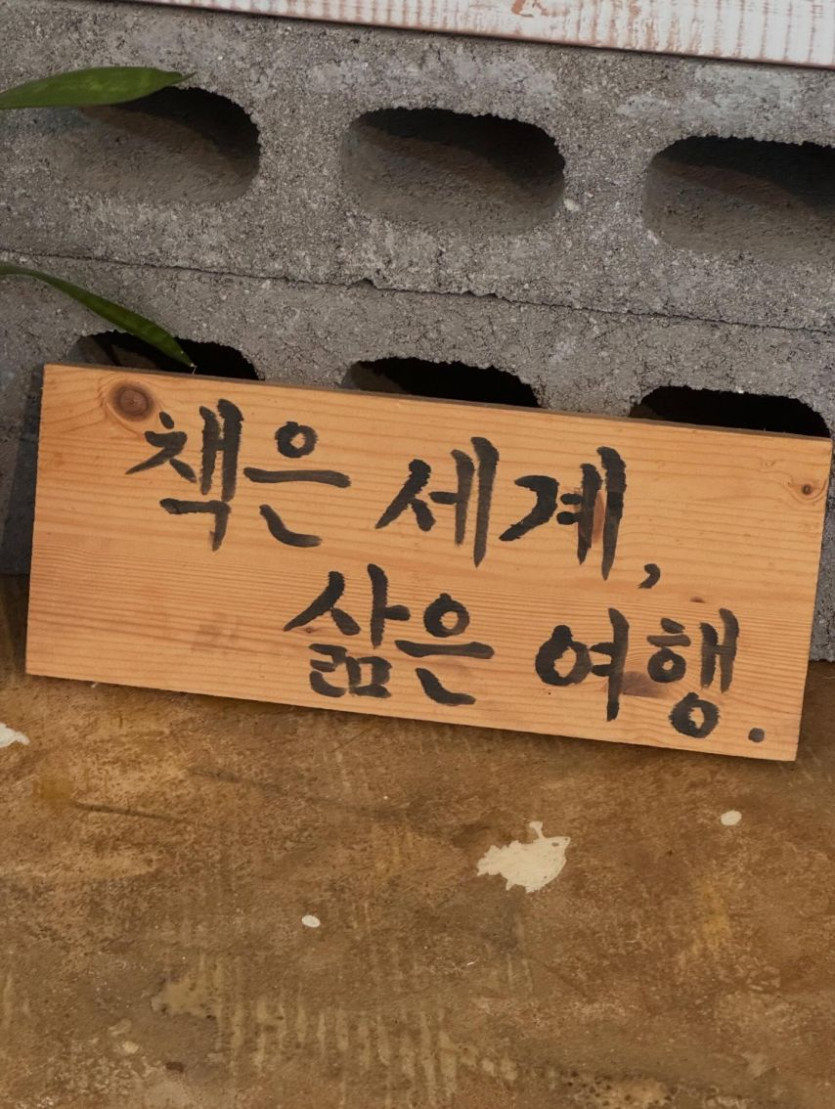 책은 세계,
삶은 여행.